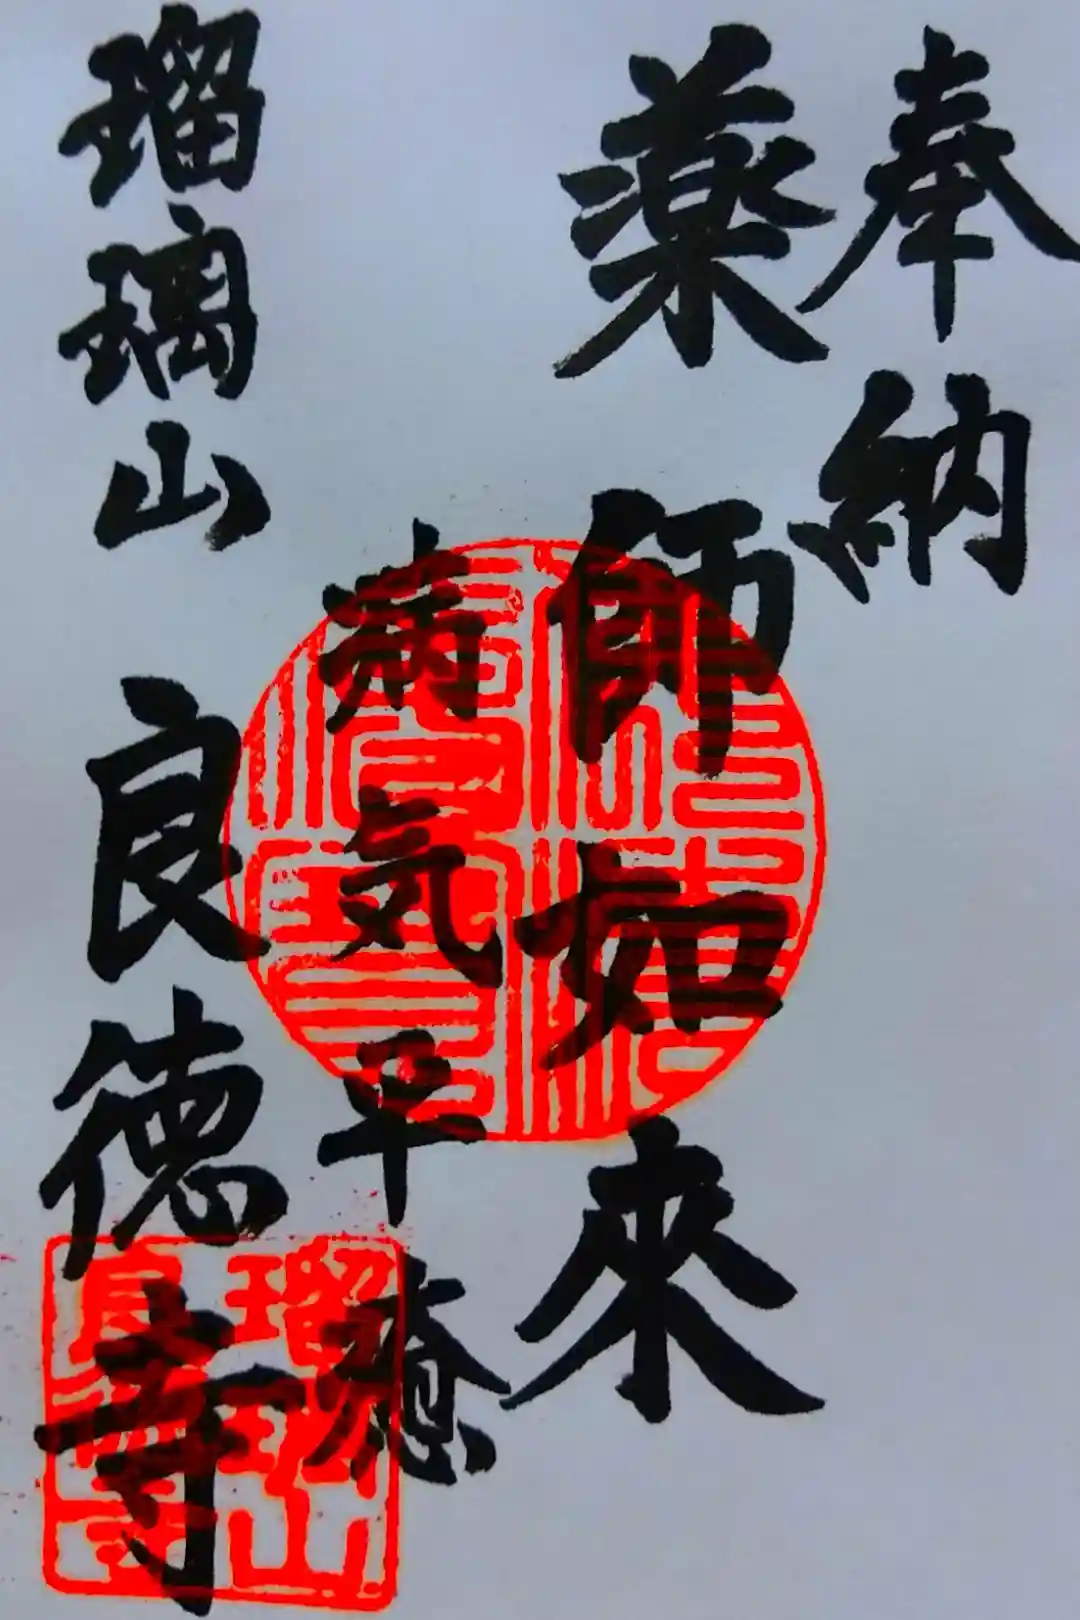 奉納
薬師如來
病気平癒
瑠璃山
良徳寺
瑠璃山
良徳寺